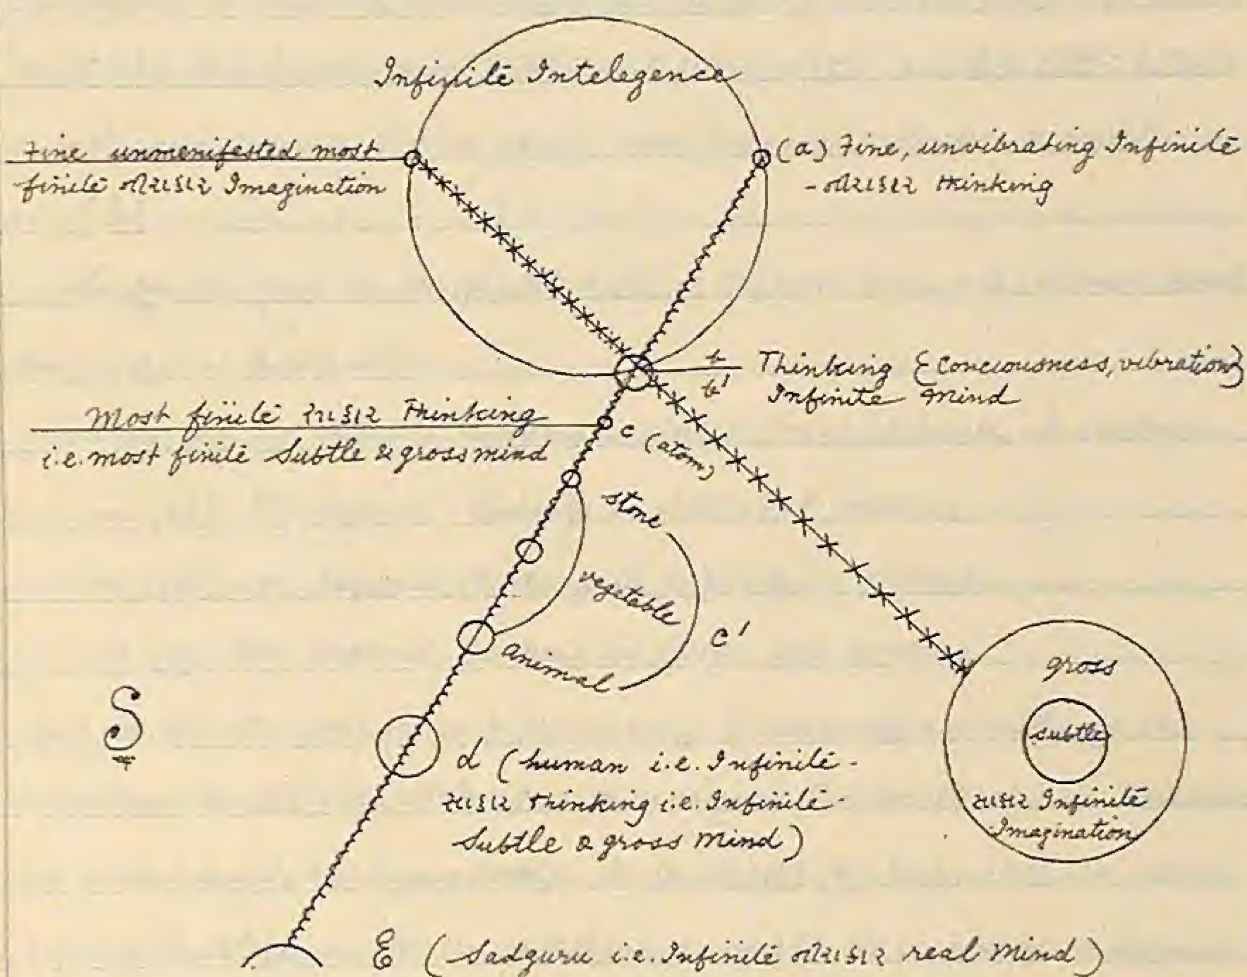 Infinite Intelegence
Fine unmenifested most
finite નીરાકાર Imagination
(a) Fine, unvibrating Infinite
- નીરાકાર thinking
b
b'
Thinking {Conciousness, vibration}
Infinite mind
Most finite સાકાર thinking
i.e. most finite Subtle & gross mind
c (atom)
stone
vegetable
animal
c'
gross
subtle
સાકાર Infinite
Imagination
S
d (human i.e. Infinite -
સાકાર thinking i.e. Infinite -
Subtle & gross mind)
E (Sadguru i.e. Infinite નીરાકાર real mind)